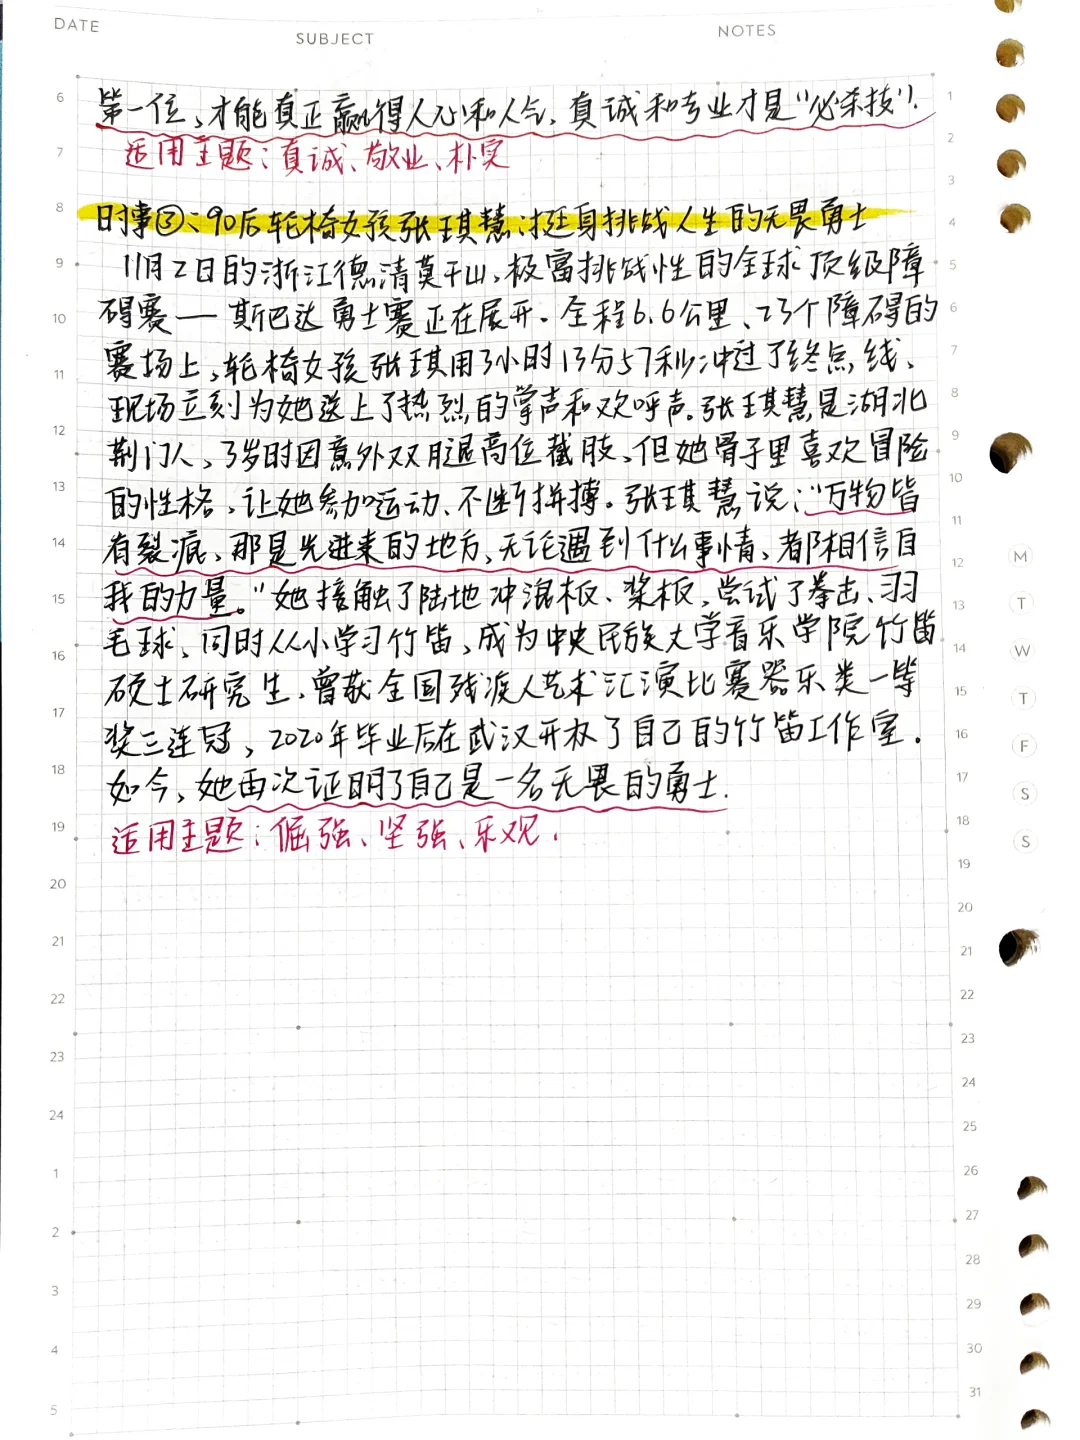 DATE
SUBJECT
NOTES
第一位，才能真正赢得人心和人气，真诚和专业才是“必杀技”。
适用主题：真诚、敬业、朴实
时事③：90后轮椅女孩张琪慧：挺身挑战人生的无畏勇士
11月2日的浙江德清莫干山，极富挑战性的全球顶级障
碍赛——斯巴达勇士赛正在展开。全程6.6公里、23个障碍的
赛场上，轮椅女孩张琪用3小时13分57秒冲过了终点线，
现场立刻为她送上了热烈的掌声和欢呼声。张琪慧是湖北
荆门人，3岁时因意外双腿高位截肢，但她骨子里喜欢冒险
的性格，让她参加运动、不断拼搏。张琪慧说：“万物皆
有裂痕，那是光进来的地方，无论遇到什么事情，都相信自
我的力量。”她接触了陆地冲浪板、桨板，尝试了拳击、羽
毛球，同时从小学习竹笛，成为中央民族大学音乐学院竹笛
硕士研究生，曾获全国残疾人艺术汇演比赛器乐类一等
奖三连冠，2020年毕业后在武汉开办了自己的竹笛工作室。
如今，她再次证明了自己是一名无畏的勇士.
适用主题：倔强、坚强、乐观.
6
7
8
9
10
11
12
13
14
15
16
17
18
19
20
21
22
23
24
1
2
3
4
5
1
2
3
4
5
6
7
8
9
10
11
12
13
14
15
16
17
18
19
20
21
22
23
24
25
26
27
28
29
30
31
M
T
W
T
F
S
S